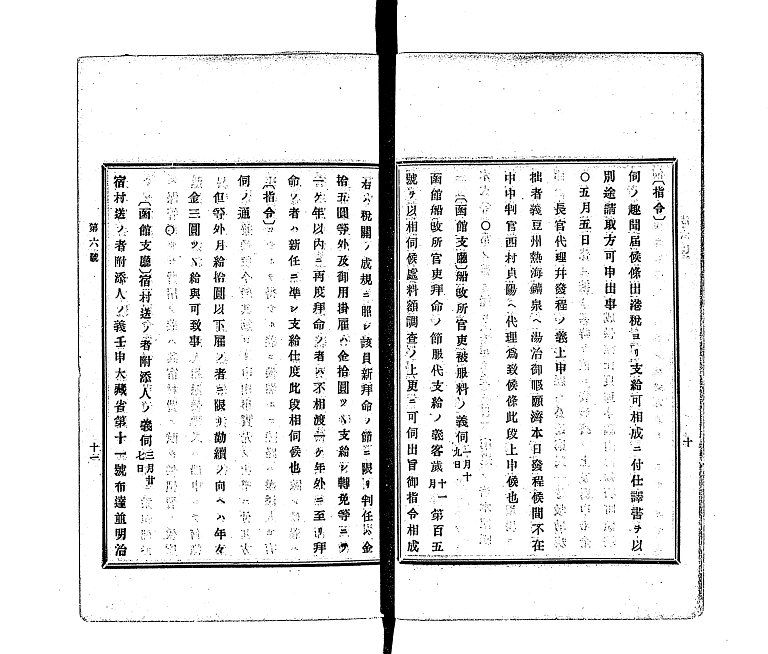 〔指令〕
伺ノ趣聞届候條出港税ヨリ支給可相成ニ付仕譯書ヲ以
別途請取方可申出事
〇五月五日
長官代理幷發程ノ義上申
拙者義豆州熱海鑛泉ヘ湯治御暇願濟本日發程候間不在
中中判官西村貞陽ヘ代理爲致候條此段上申候也
〇
〔函館支廳〕船改所官吏被服料ノ義伺 一月十九日
函館船改所官吏拜命ノ節服代支給ノ義客歲十一月第百五
號ヲ以相伺候處料額調査ノ上更ニ可伺出旨御指令相成
十
右ハ税關ノ成規ニ照シ該員新拜命ノ節ニ限リ判任ハ金
拾五圓等外及御用掛雇ハ金拾圓ツヽ支給シ轉免等ニテ
一ケ年以内ニ再度拜命ノ者ハ不相渡一ケ年外ニ至リ拜
命ノ者ハ新任ニ準シ支給仕度此段相伺候也
〔指令〕
伺ノ通
但等外月給拾圓以下雇ノ者ニ限リ勤續ノ向ヘハ年々
金三圓ツヽ給與可致事
〇
〔函館支廳〕宿村送ノ者附添人ノ義伺 三月廿七日
宿村送ノ者附添人ノ義壬申大藏省第十一號布達並明治
第六號
十一